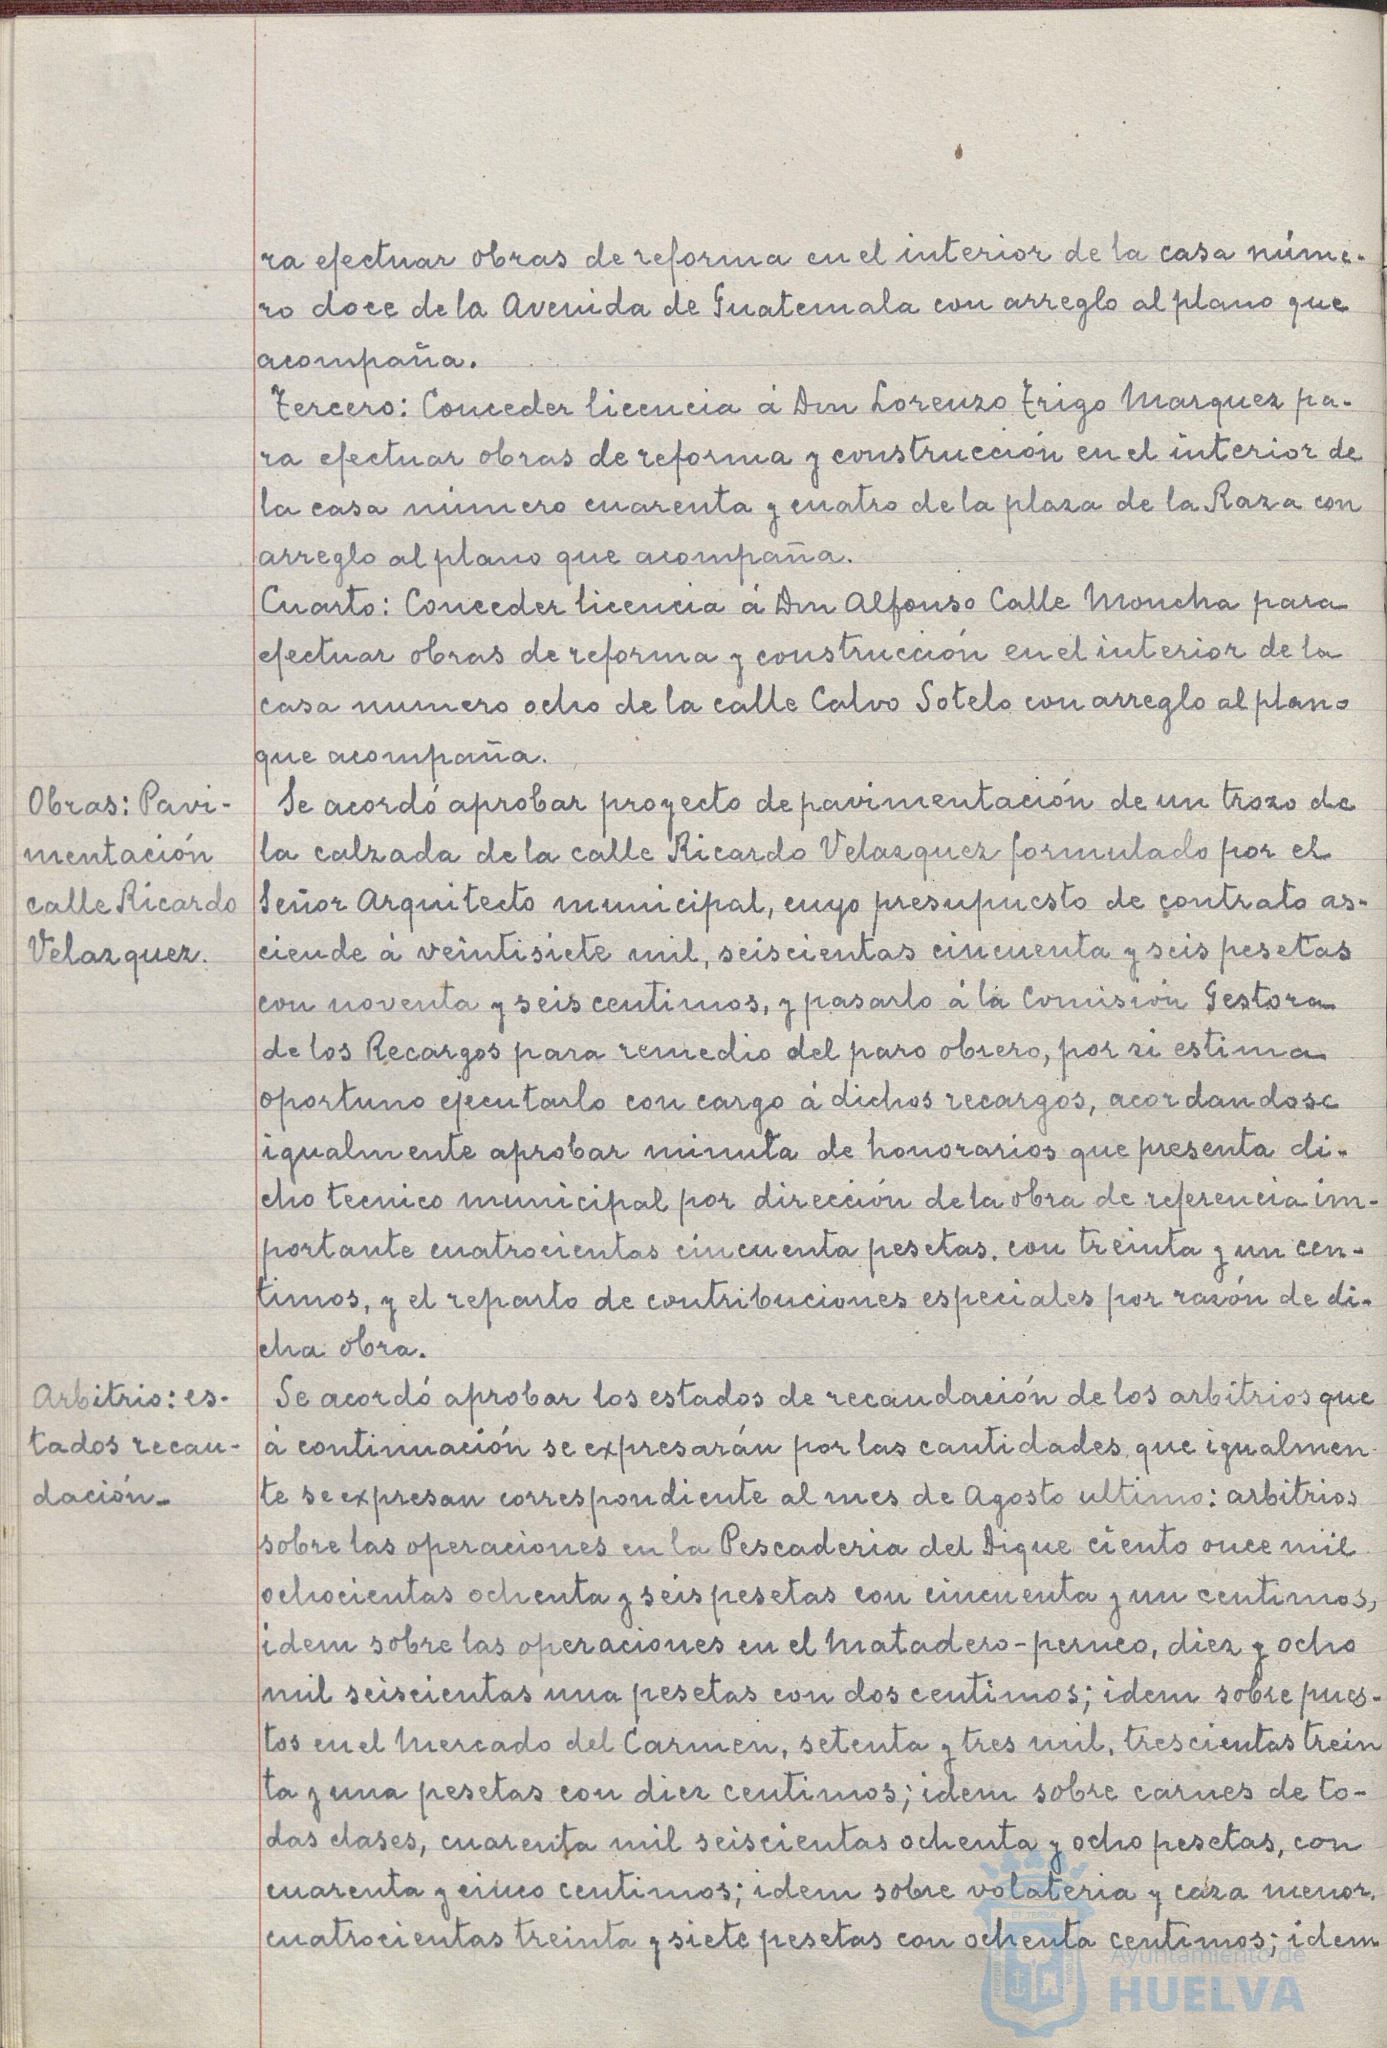 ra efectuar obras de reforma en el interior de la casa núme-
ro doce de la Avenida de Guatemala con arreglo al plano que
acompaña.
Tercero: Conceder licencia á Don Lorenzo Trigo Marquez pa-
ra efectuar obras de reforma y construcción en el interior de
la casa número cuarenta y cuatro de la plaza de la Raza con
arreglo al plano que acompaña.
Cuarto: Conceder licencia á Don Alfonso Calle Moncha para
efectuar obras de reforma y construcción en el interior de la
casa numero ocho de la calle Calvo Sotelo con arreglo al plano
que acompaña.
Obras: Pavi-
mentación
calle Ricardo
Velazquez.
Se acordó aprobar proyecto de pavimentación de un trozo de
la calzada de la calle Ricardo Velazquez formulado por el
Señor Arquitecto municipal, cuyo presupuesto de contrato as-
ciende á veintisiete mil, seiscientas cincuenta y seis pesetas
con noventa y seis centimos, y pasarlo á la Comisión Gestora
de los Recargos para remedio del paro obrero, por si estima
oportuno ejecutarlo con cargo á dichos recargos, acordandose
igualmente aprobar minuta de honorarios que presenta di-
cho tecnico municipal por dirección de la obra de referencia im-
portante cuatrocientas cincuenta pesetas. con treinta y un cen-
timos, y el reparto de contribuciones especiales por razón de di-
cha obra.
Arbitrio: es-
tados recau-
dación-
Se acordó aprobar los estados de recaudación de los arbitrios que
á continuación se expresarán por las cantidades que igualmen-
te se expresan correspondiente al mes de Agosto ultimo: arbitrios
sobre las operaciones en la Pescaderia del Dique ciento once mil
ochocientas ochenta y seis pesetas con cincuenta y un centimos,
idem sobre las operaciones en el Matadero-perneo, diez y ocho
mil seiscientas una pesetas con dos centimos; idem sobre pues-
tos en el Mercado del Carmen, setenta y tres mil, trescientas trein
ta y una pesetas con diez centimos; idem sobre carnes de to-
das clases, cuarenta mil seiscientas ochenta y ocho pesetas, con
cuarenta y cinco centimos; idem sobre volateria y caza menor,
cuatrocientas treinta y siete pesetas con ochenta centimos; idem
Ayuntamiento de
HUELVA